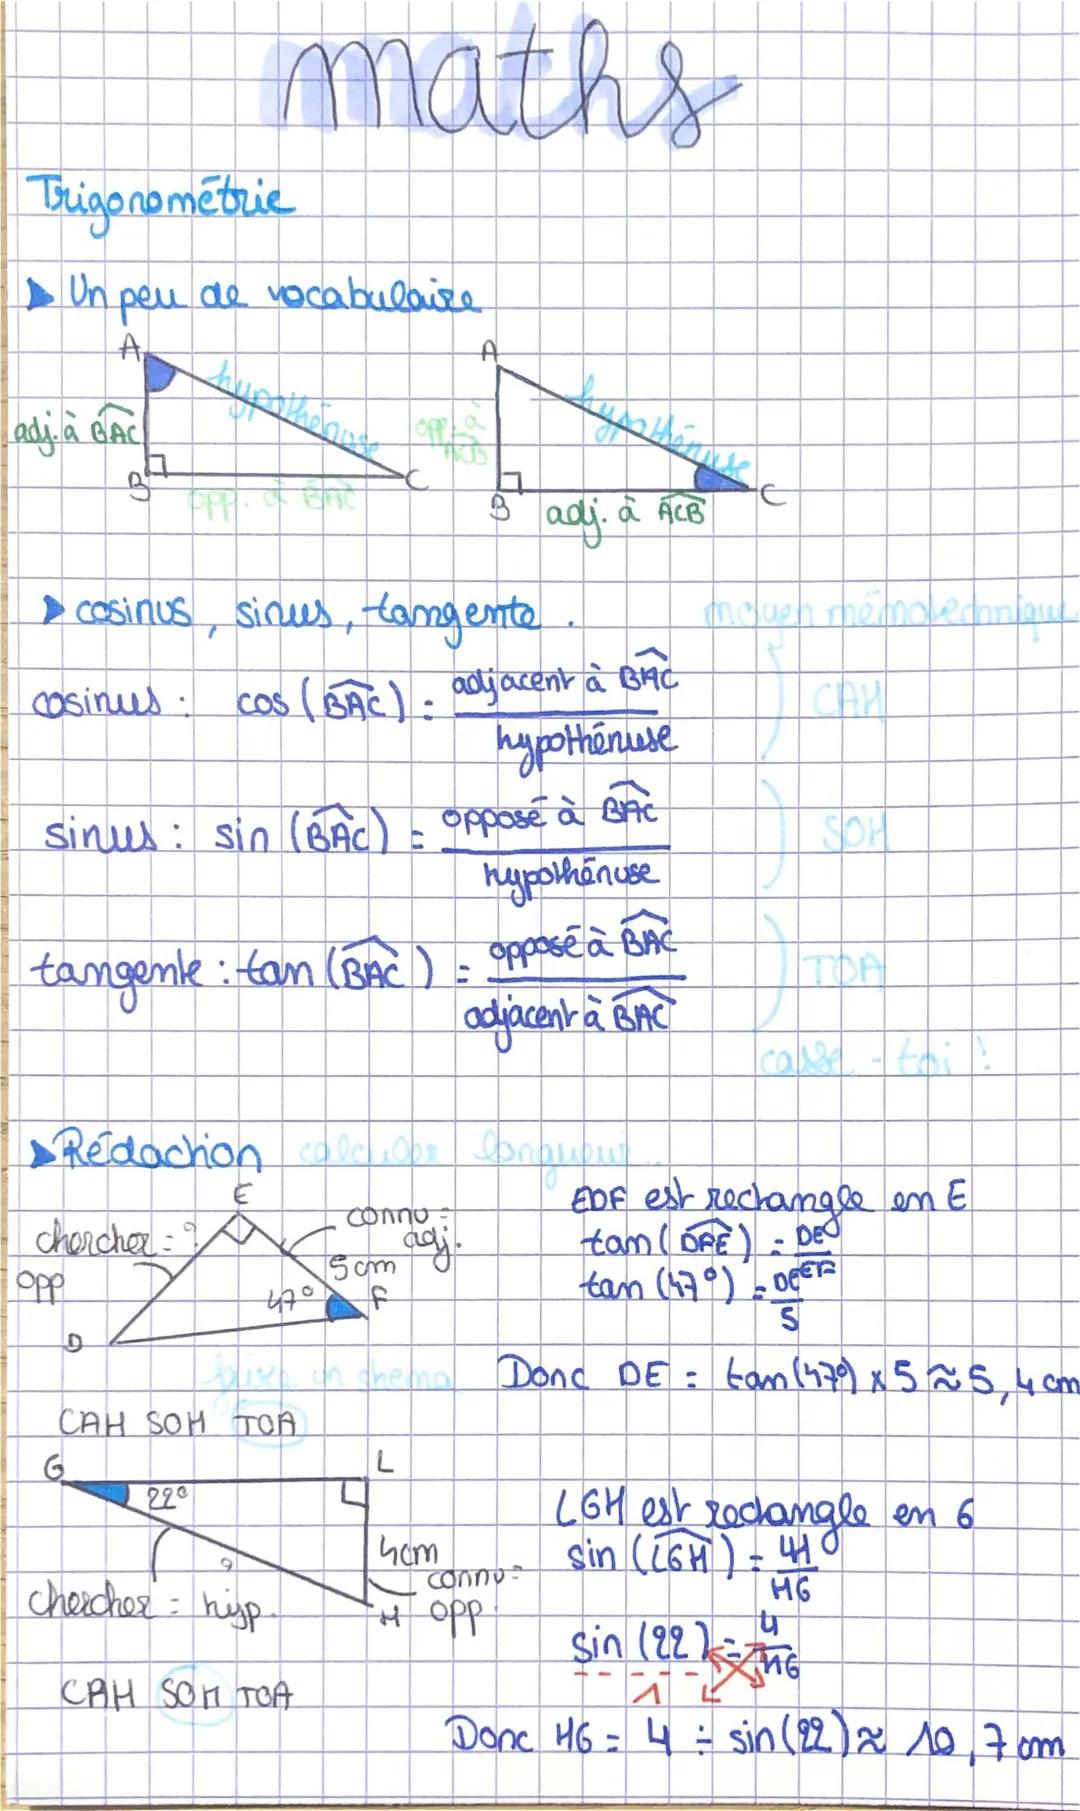 maths
Trigonométrie
▶ Un peu de vocabulaire
A
hypothénuse
adj. à BAC
B
C
opp. à BAC
A
hypothénuse
opp. à
ACB
B
C
adj. à ACB
▶ cosinus, sinus, tangente.
moyen mémotechnique
cosinus : cos (BAC) = adjacent à BAC
hypothénuse
CAH
sinus : sin (BAC) = opposé à BAC
hypothénuse
SOH
tangente : tan (BAC) = opposé à BAC
adjacent à BAC
TOA
casse-toi !
▶ Rédaction calculer longueur..
E
chercher = ?
opp
connu =
adj.
5cm
47°
F
D
EDF est rectangle en E
tan (DFE) = DE
EF
tan (47°) = DE
5
faire un shema
Donc DE = tan(47°) x 5 ≈ 5,4 cm
CAH SOH TOA
G
L
22°
4cm
connu =
opp.
?
chercher = hyp.
H
LGH est rectangle en G
sin (LGH) = LH
HG
sin (22) = 4
HG
1
CAH SOH TOA
Donc HG = 4 ÷ sin(22) ≈ 10,7 cm